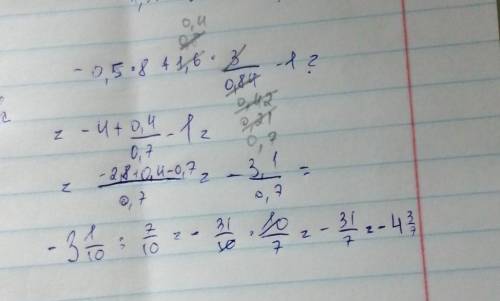 0,4
0,8
- 0,5 * 8 + 1,6 * 3/0,84 - 1 =
0,42
0,21
0,7
= - 4 + 0,4/0,7 - 1 =
= -2,8+0,4-0,7/0,7 = - 3,1/0,7 =
- 3 1/10 : 7/10 = - 31/10 * 10/7 = - 31/7 = - 4 3/7